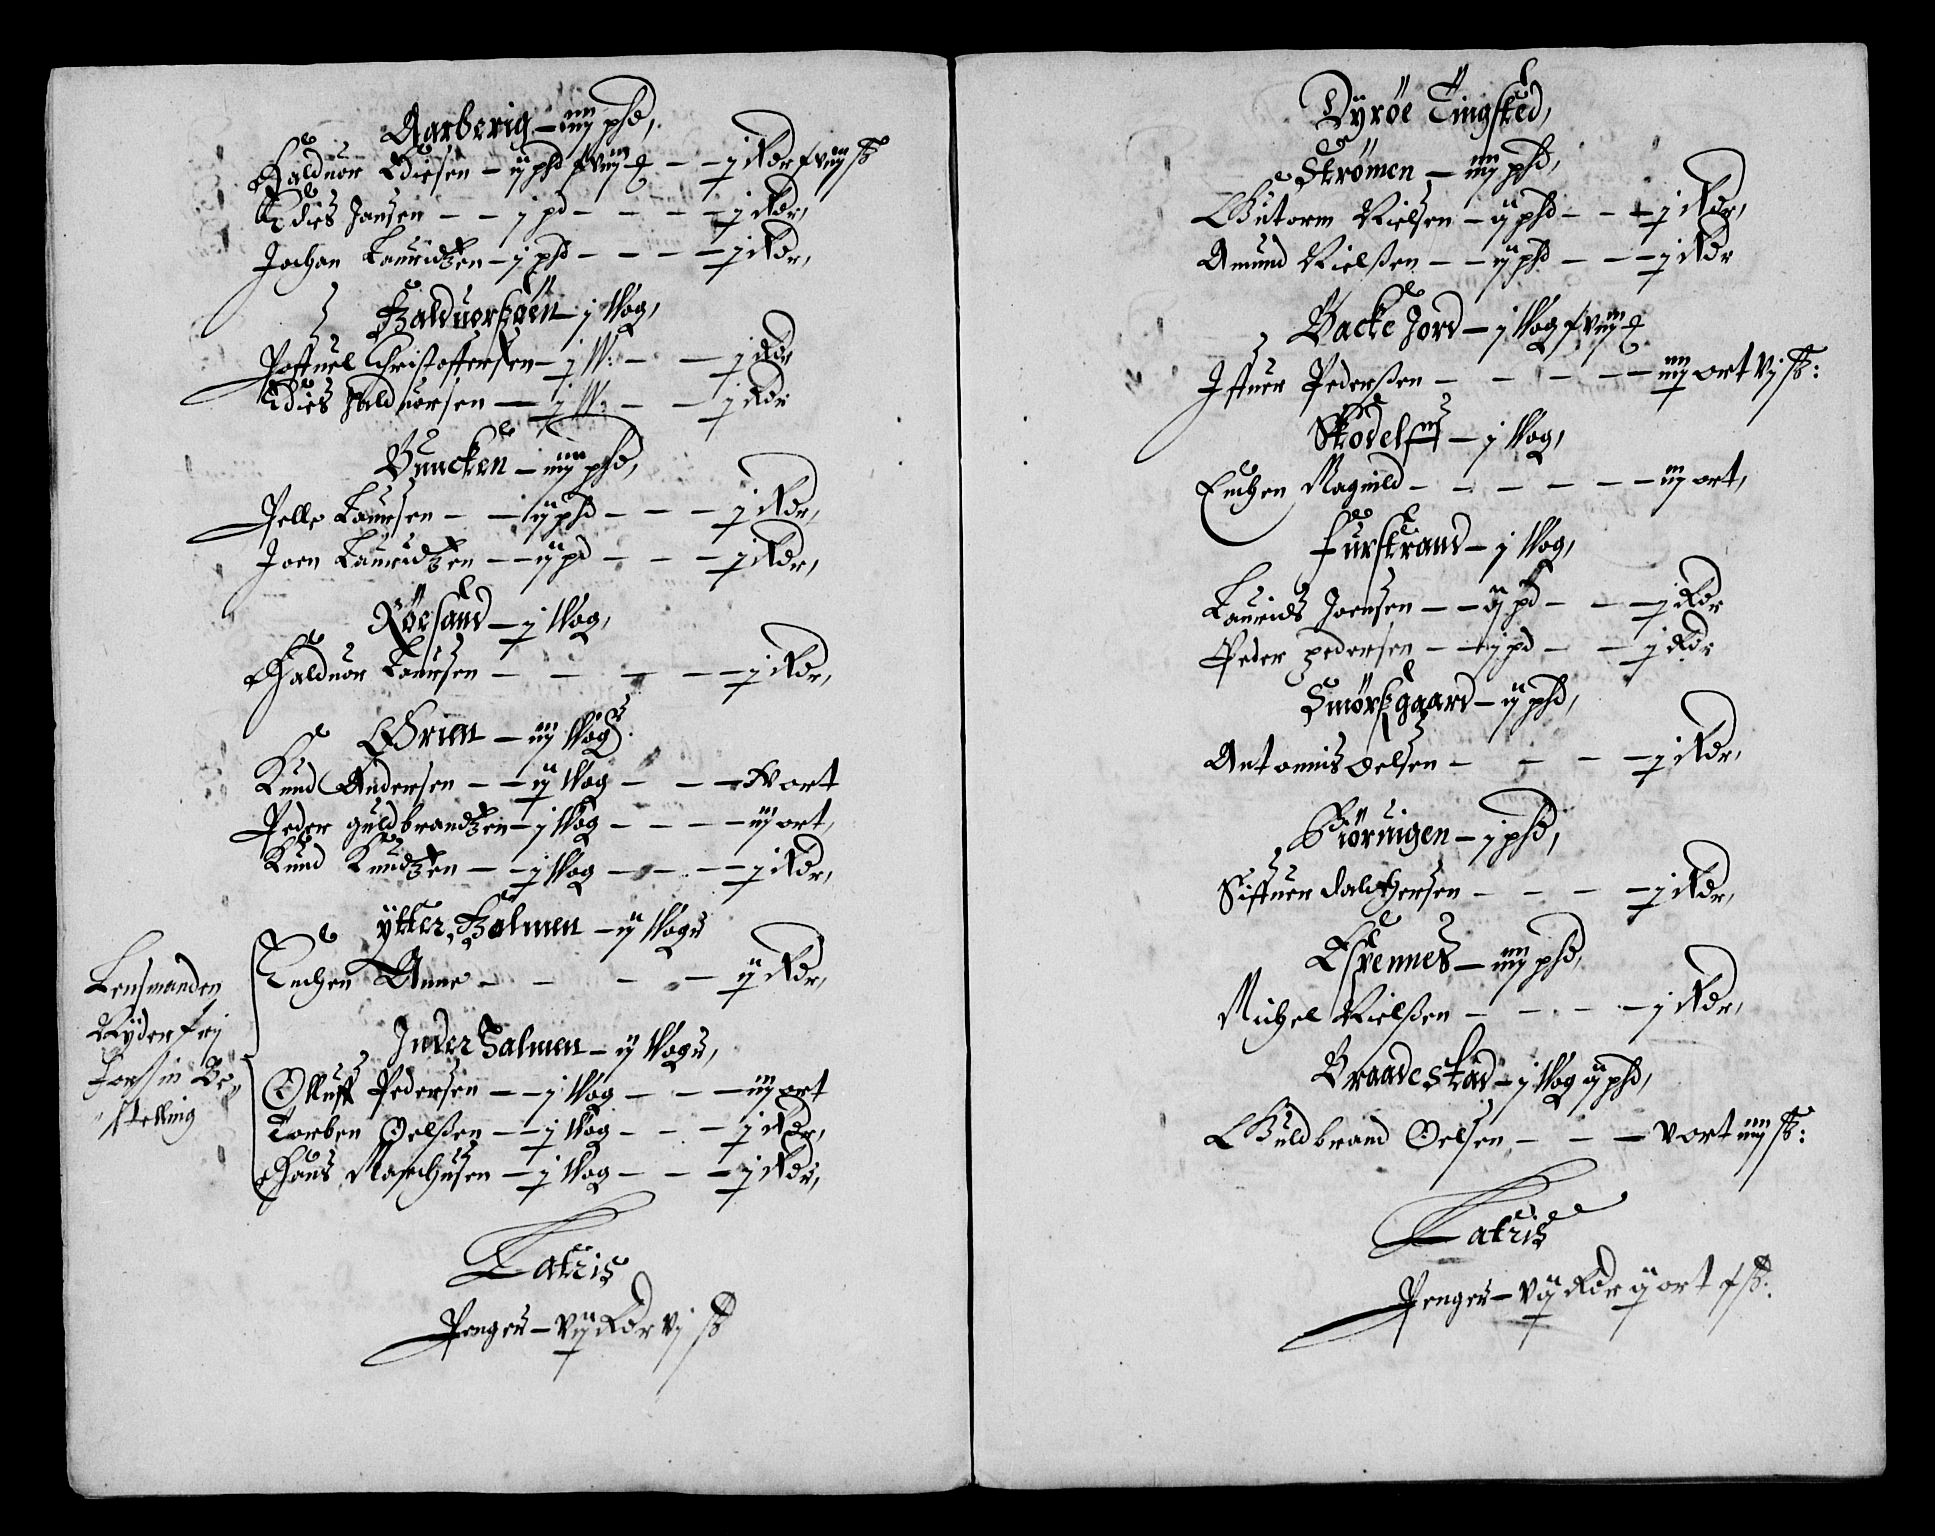 Aarberig – iiij phd,
Halduor Edisen – ij phd xviij – – j Rdr xviij ß
Edies Jansen – – j pd – – – j Rdr,
Jochan Lauridtzen – j phd – – – j Rdr,
Balduorsøen – j Wog,
Poffuel Christoffersen – j W: – – j Rdr
Edies Halduorsen – j W: – – j Rdr
Buncken – iiij phd,
Pelle Laursen – – ij phd – – – j Rdr,
Joen Lauridtzen – – ij pd – – – j Rdr,
Röesand – j Wog,
Halduor Laursen – – – – j Rdr,
Griem – iij Wog:
Knud Andersen – – ij Wog – – – V ort
Peder guldbrandtzen – j Wog – – – iij ort,
Knud Knudtzen – – j Wog – – – j Rdr,
ÿtter Halmen – ij Wogr
Enchen Anne – – – – ij Rdr,
Lensmanden
Nÿder frj
for sin Be-
stelling
Inder Halmen – ij Wogr,
Olluff Pedersen – – j Wog – – – iij ort
Torben Oelßen – – j Wog – – – j Rdr,
Hans Marchusen – j Wog – – – j Rdr,
Latris
Penger – Vij Rdr Vj ß
Dÿröe Tingsted,
Strömen – iiij phd,
Gutorm Nielsen – ij phd – – j Rdr,
Amund Nielßen – – ij phd – – j Rdr
Backe Jord – j Wog xviij
Iffuer Pederßen – – – – – iiij ort Vj ß:
Skodels – j Wog,
Enchen Magnild – – – – – iij ort,
Furstrand – j Wog,
Laurids Joensen – – ij pd – – j Rdr
Peder pedersen – – j pd – – j Rdr
Smörßgaard – ij phd,
Antonnis oelsen – – – – j Rdr,
Biöruigen – j phd,
Siffuer Halduersen – – – – j Rdr,
Espennes – iiij phd,
Michel Nielßen – – – – j Rdr,
Braadestad – j Wog ij phd,
Guldbrand Oelsen – – – V ort iiij ß:
Latris
Penger – Vij Rdr ij ort x ß: